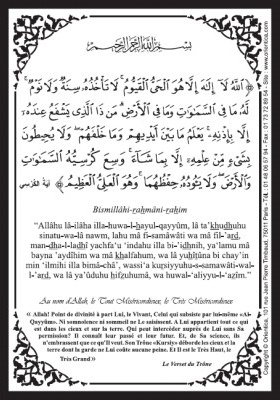 بِسْمِ اللَّهِ الرَّحْمَنِ الرَّحِيمِ
﴿ اللَّهُ لَا إِلَٰهَ إِلَّا هُوَ الْحَيُّ الْقَيُّومُ لَا تَأْخُذُهُ سِنَةٌ وَلَا نَوْمٌ
لَهُ مَا فِي السَّمَوَاتِ وَمَا فِي الْأَرْضِ مَن ذَا الَّذِي يَشْفَعُ عِندَهُ
إِلَّا بِإِذْنِهِ يَعْلَمُ مَا بَيْنَ أَيْدِيهِمْ وَمَا خَلْفَهُمْ وَلَا يُحِيطُونَ
بِشَيْءٍ مِّنْ عِلْمِهِ إِلَّا بِمَا شَاءَ وَسِعَ كُرْسِيُّهُ السَّمَوَاتِ
وَالْأَرْضَ وَلَا يَئُودُهُ حِفْظُهُمَا وَهُوَ الْعَلِيُّ الْعَظِيمُ ﴾ آية الكرسي
Bismillâhi-rahmâni-rahim
"Allâhu lâ-ilâha illa-huwa-l-hayul-qayyûm, lâ ta'khudhuhu
sinatu-wa-lâ nawm, lahu mâ fi-samâwâti wa mâ fil-'ard,
man-dha-l-ladhî yachfa'u 'indahu illa bi-'idhnih, ya'lamu mâ
bayna 'aydîhim wa mâ khalfahum, wa lâ yuhîtûna bi chay'in
min 'ilmihi illa bimâ-châ', wassi'a kursiyyuhu-s-samawâti-wal-
l-'ard, wa lâ ya'ûduhu hifzuhumâ, wa huwal-'aliyyu-l-'azîm."
Au nom d'Allah, le Tout Miséricordieux, le Très Miséricordieux
« Allah! Point de divinité à part Lui, le Vivant, Celui qui subsiste par lui-même «Al-
Qayyûm». Ni somnolence ni sommeil ne Le saisissent. A Lui appartient tout ce qui
est dans les cieux et sur la terre. Qui peut intercéder auprès de Lui sans Sa
permission? Il connaît leur passé et leur futur. Et, de Sa science, ils
n'embrassent que ce qu'Il veut. Son Trône «Kursiy» déborde les cieux et la
terre dont la garde ne Lui coûte aucune peine. Et Il est le Très Haut, le
Très Grand »
Le Verset du Trône
Copyright © Orientica, 101 rue Jean Pierre Timbaud, 75011 Paris - Tél. : 01 48 06 57 94 - Fax : 01 73 72 89 54 - Site : www.orientica.com